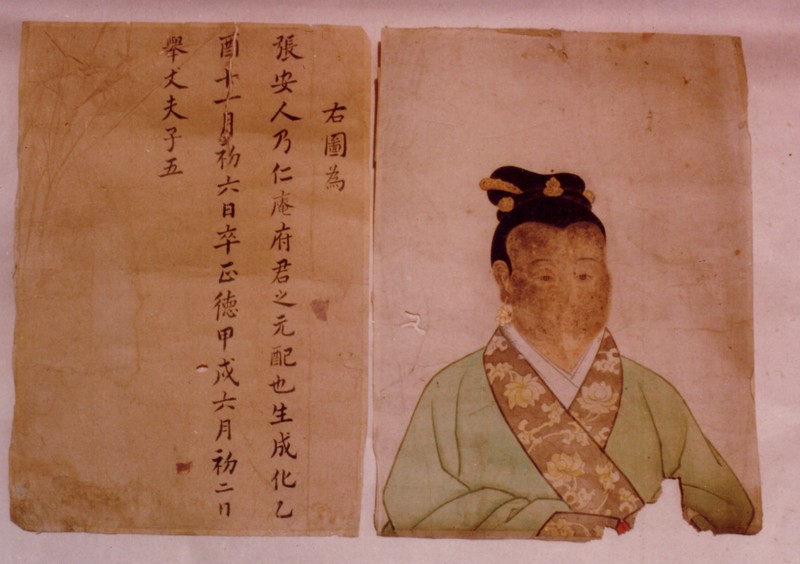 右圖為
張安人乃仁庵府君之元配也生成化乙
酉十一月初六日卒正德甲戌六月初二日
舉丈夫子五